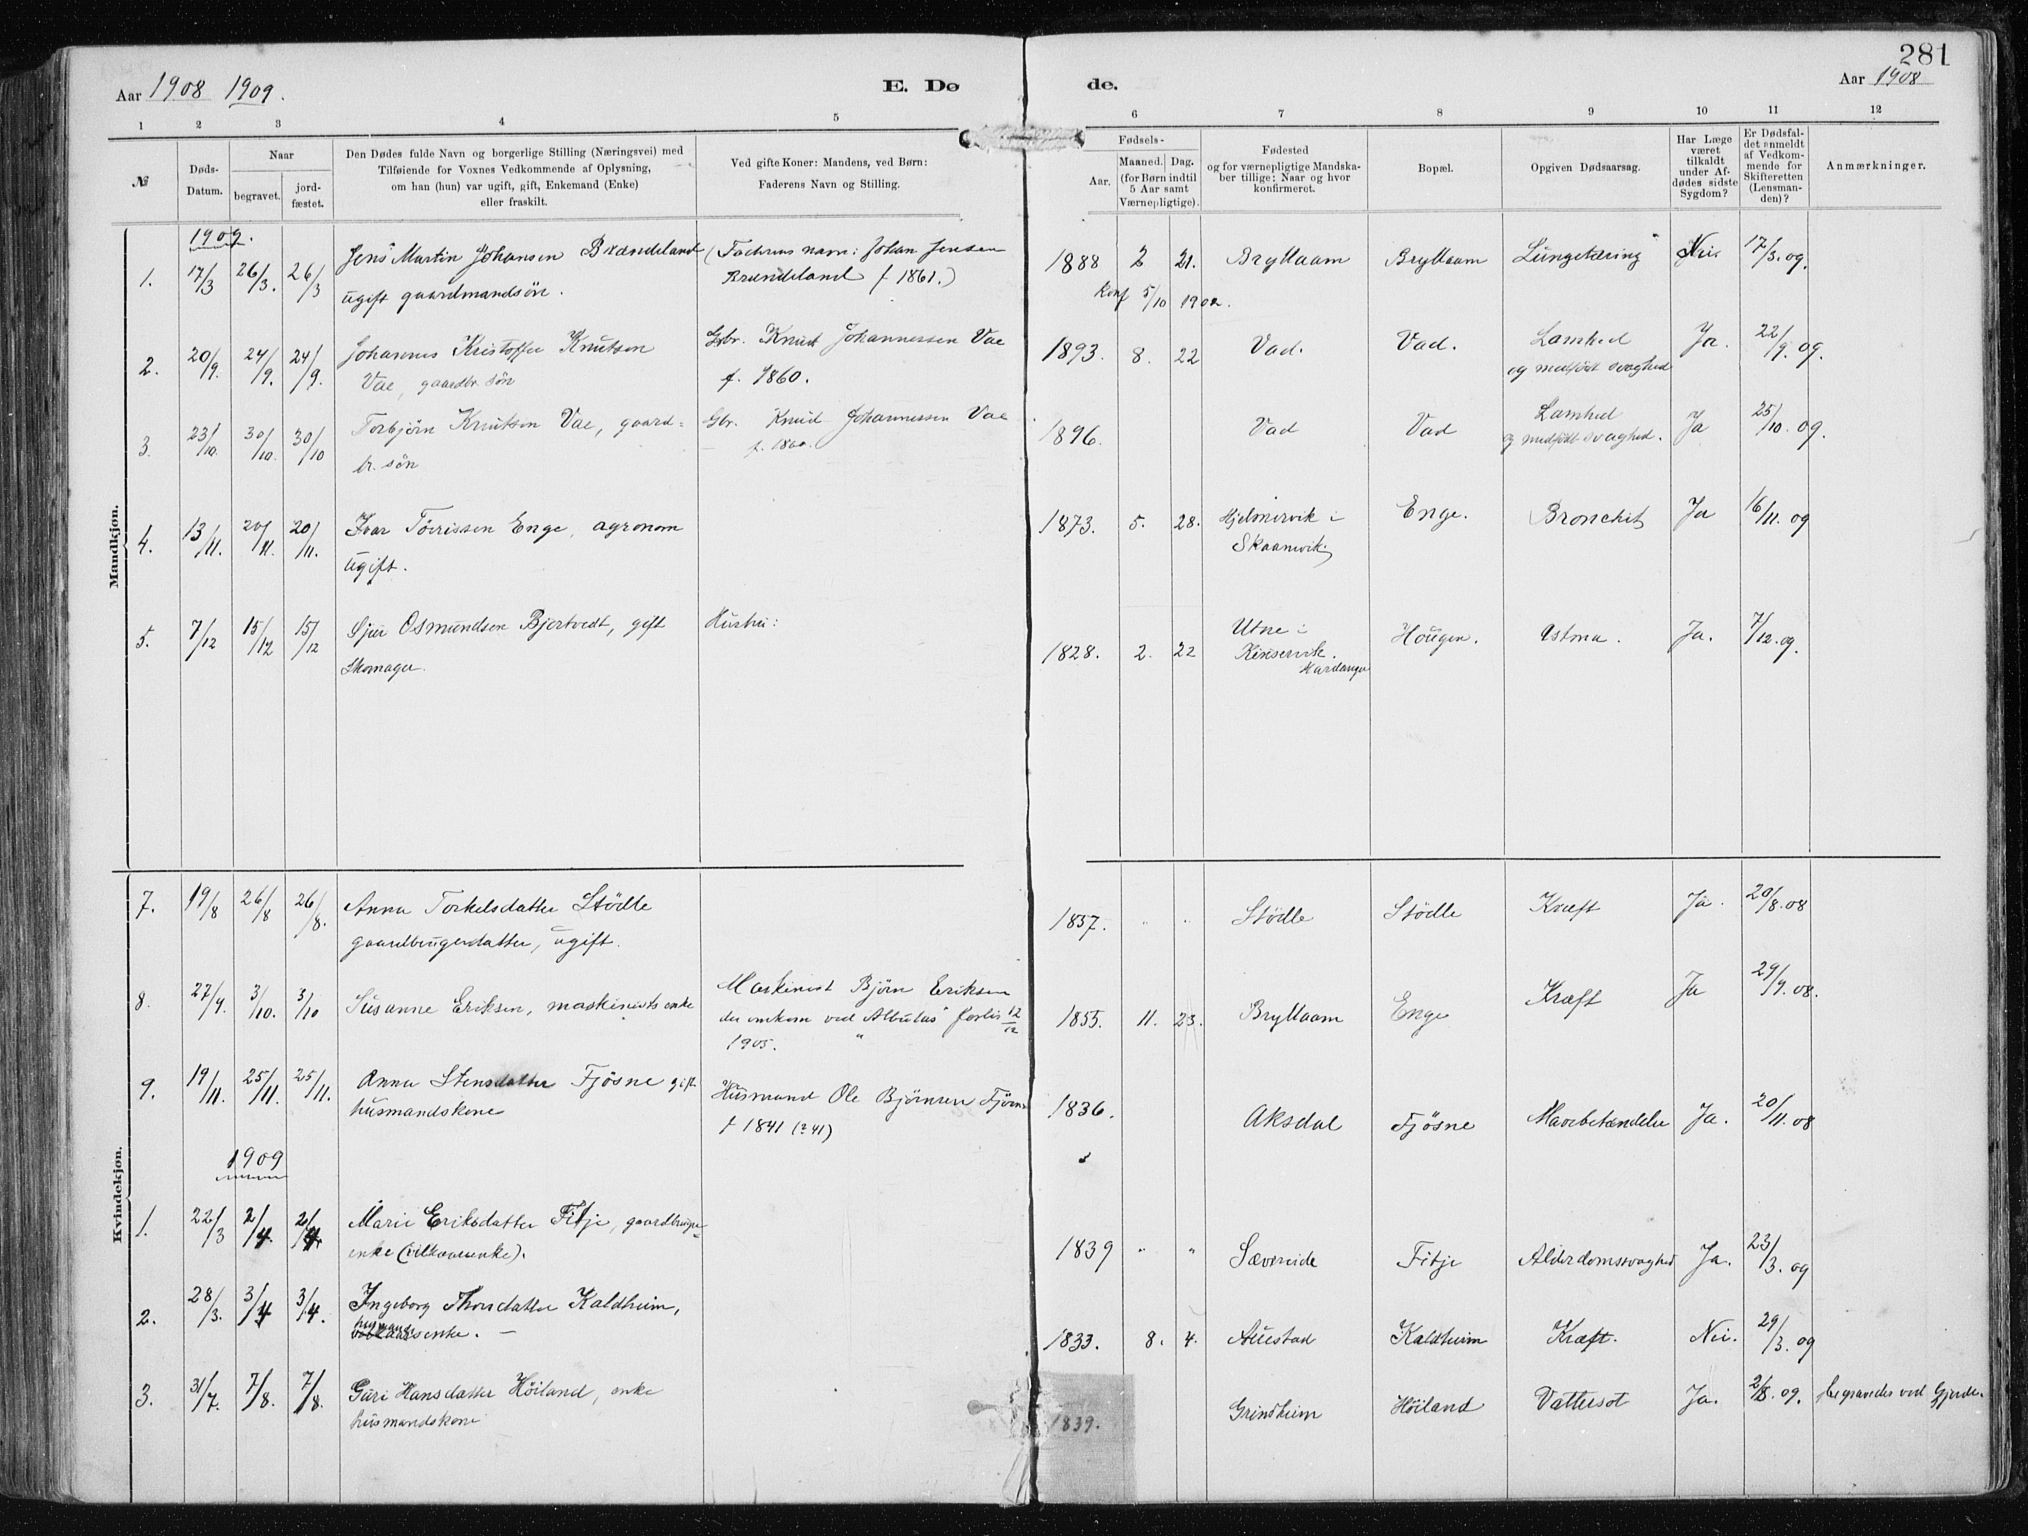 281
Aar 1908 1909.
E. Dø
de.
Aar 1908
1 2 3 4 5 6 7 8 9 10 11 12
№
Døds-
Datum.
Naar
begravet.
jord-
fæstet.
Den Dødes fulde Navn og borgerlige Stilling (Næringsvei) med
Tilføiende for Voxnes Vedkommende af Oplysning,
om han (hun) var ugift, gift, Enkemand (Enke)
eller fraskilt.
Ved gifte Koner: Mandens, ved Børn:
Faderens Navn og Stilling.
Fødsels-
Aar.
Maaned. Dag.
(for Børn indtil
5 Aar samt
Værnepligtige).
Fødested
og for værnepligtige Mandska-
ber tillige: Naar og hvor
konfirmeret.
Bopæl.
Opgiven Dødsaarsag.
Har Læge
været
tilkaldt
under Af-
dødes sidste
Sygdom?
Er Dødsfal-
det anmeldt
af Vedkom-
mende for
Skifteretten
(Lensman-
den)?
Anmærkninger.
Mandkjøn.
1909.
1. 17/3 26/3. 26/3 Jens Martin Johansen Brændeland (Faderens navn: Johan Jensen 1888 2 21. Bryllaam Bryllaam Lungetæring Nei. 17/3. 09.
ugift gaardmandsøn. Brændeland f 1861.)
Konf 5/10 1902.
2. 20/9. 24/9. 24/9. Johannes Kristoffer Knutsen Gbr. Knud Johannessen Vae 1893. 8. 22 Vad. Vad. Lamhed Ja. 22/9. 09.
Vae, gaardbr. søn f. 1860. og medfødt svaghed
3. 23/10. 30/10. 30/10 Torbjørn Knutsen Vae, gaard= Gbr. Knud Johannessen Vae 1896. Vad Vad Lamhed Ja 25/10. 09.
br. søn f. 1860. og medfødt svaghed.
4. 13/11. 20/11. 20/11. Ivar Tørrissen Enge, agronom 1873. 5. 28. Hjelmervik i Enge. Bronchit Ja 16/11. 09
ugift. Skaanvik.
5. 7/12 15/12 15/12 Sjur Osmundsen Bjortvedt, gift Hustru: 1828. 2. 22 Utne i Hougen. Astma. Ja. 7/12. 09.
Skomager. Kinservik.
Hardanger
Kvindekjøn.
7. 19/8 26/8 26/8. Anna Torkelsdatter Stödle 1837. " " Stödle Stödle Kræft Ja. 20/8. 08
gaardbrugerdatter, ugift.
8. 27/9. 3/10. 3/10 Susanne Eriksen, maskinists enke Maskinist Bjørn Eriksen 1855. 11. 23. Bryllaam Enge Kræft Ja 29/9. 08.
der omkom ved "Albulas" forlis 12/12
1905.
9. 19/11. 25/11. 25/11. Anna Stensdatter Fjøsne gift Husmand Ole Bjørnsen Fjøsne 1836. Aksdal Fjøsne Mavebetændelse Ja. 20/11. 08
husmandskone f 1841 (?41)
1909
1. 22/3 2/4. 2/4. Marie Eriksdatter Fitje, gaardbruger= 1839 " " Sævereide Fitje Alderdomssvaghed Ja. 23/3. 09
enke (vilkaarsenke).
2. 28/3. 3/4 3/4. Ingeborg Thorsdatter Kaldheim, 1833. 8. 4. Auestad Kaldheim Kræft. Nei. 29/3. 09
husmandsenke. —
3. 31/7. 7/8. 7/8. Guri Hansdatter Høiland, enke 1839. Grindheim Høiland Vattersot Ja. 2/8. 09. begravedes ved Gjerde.
husmandskone